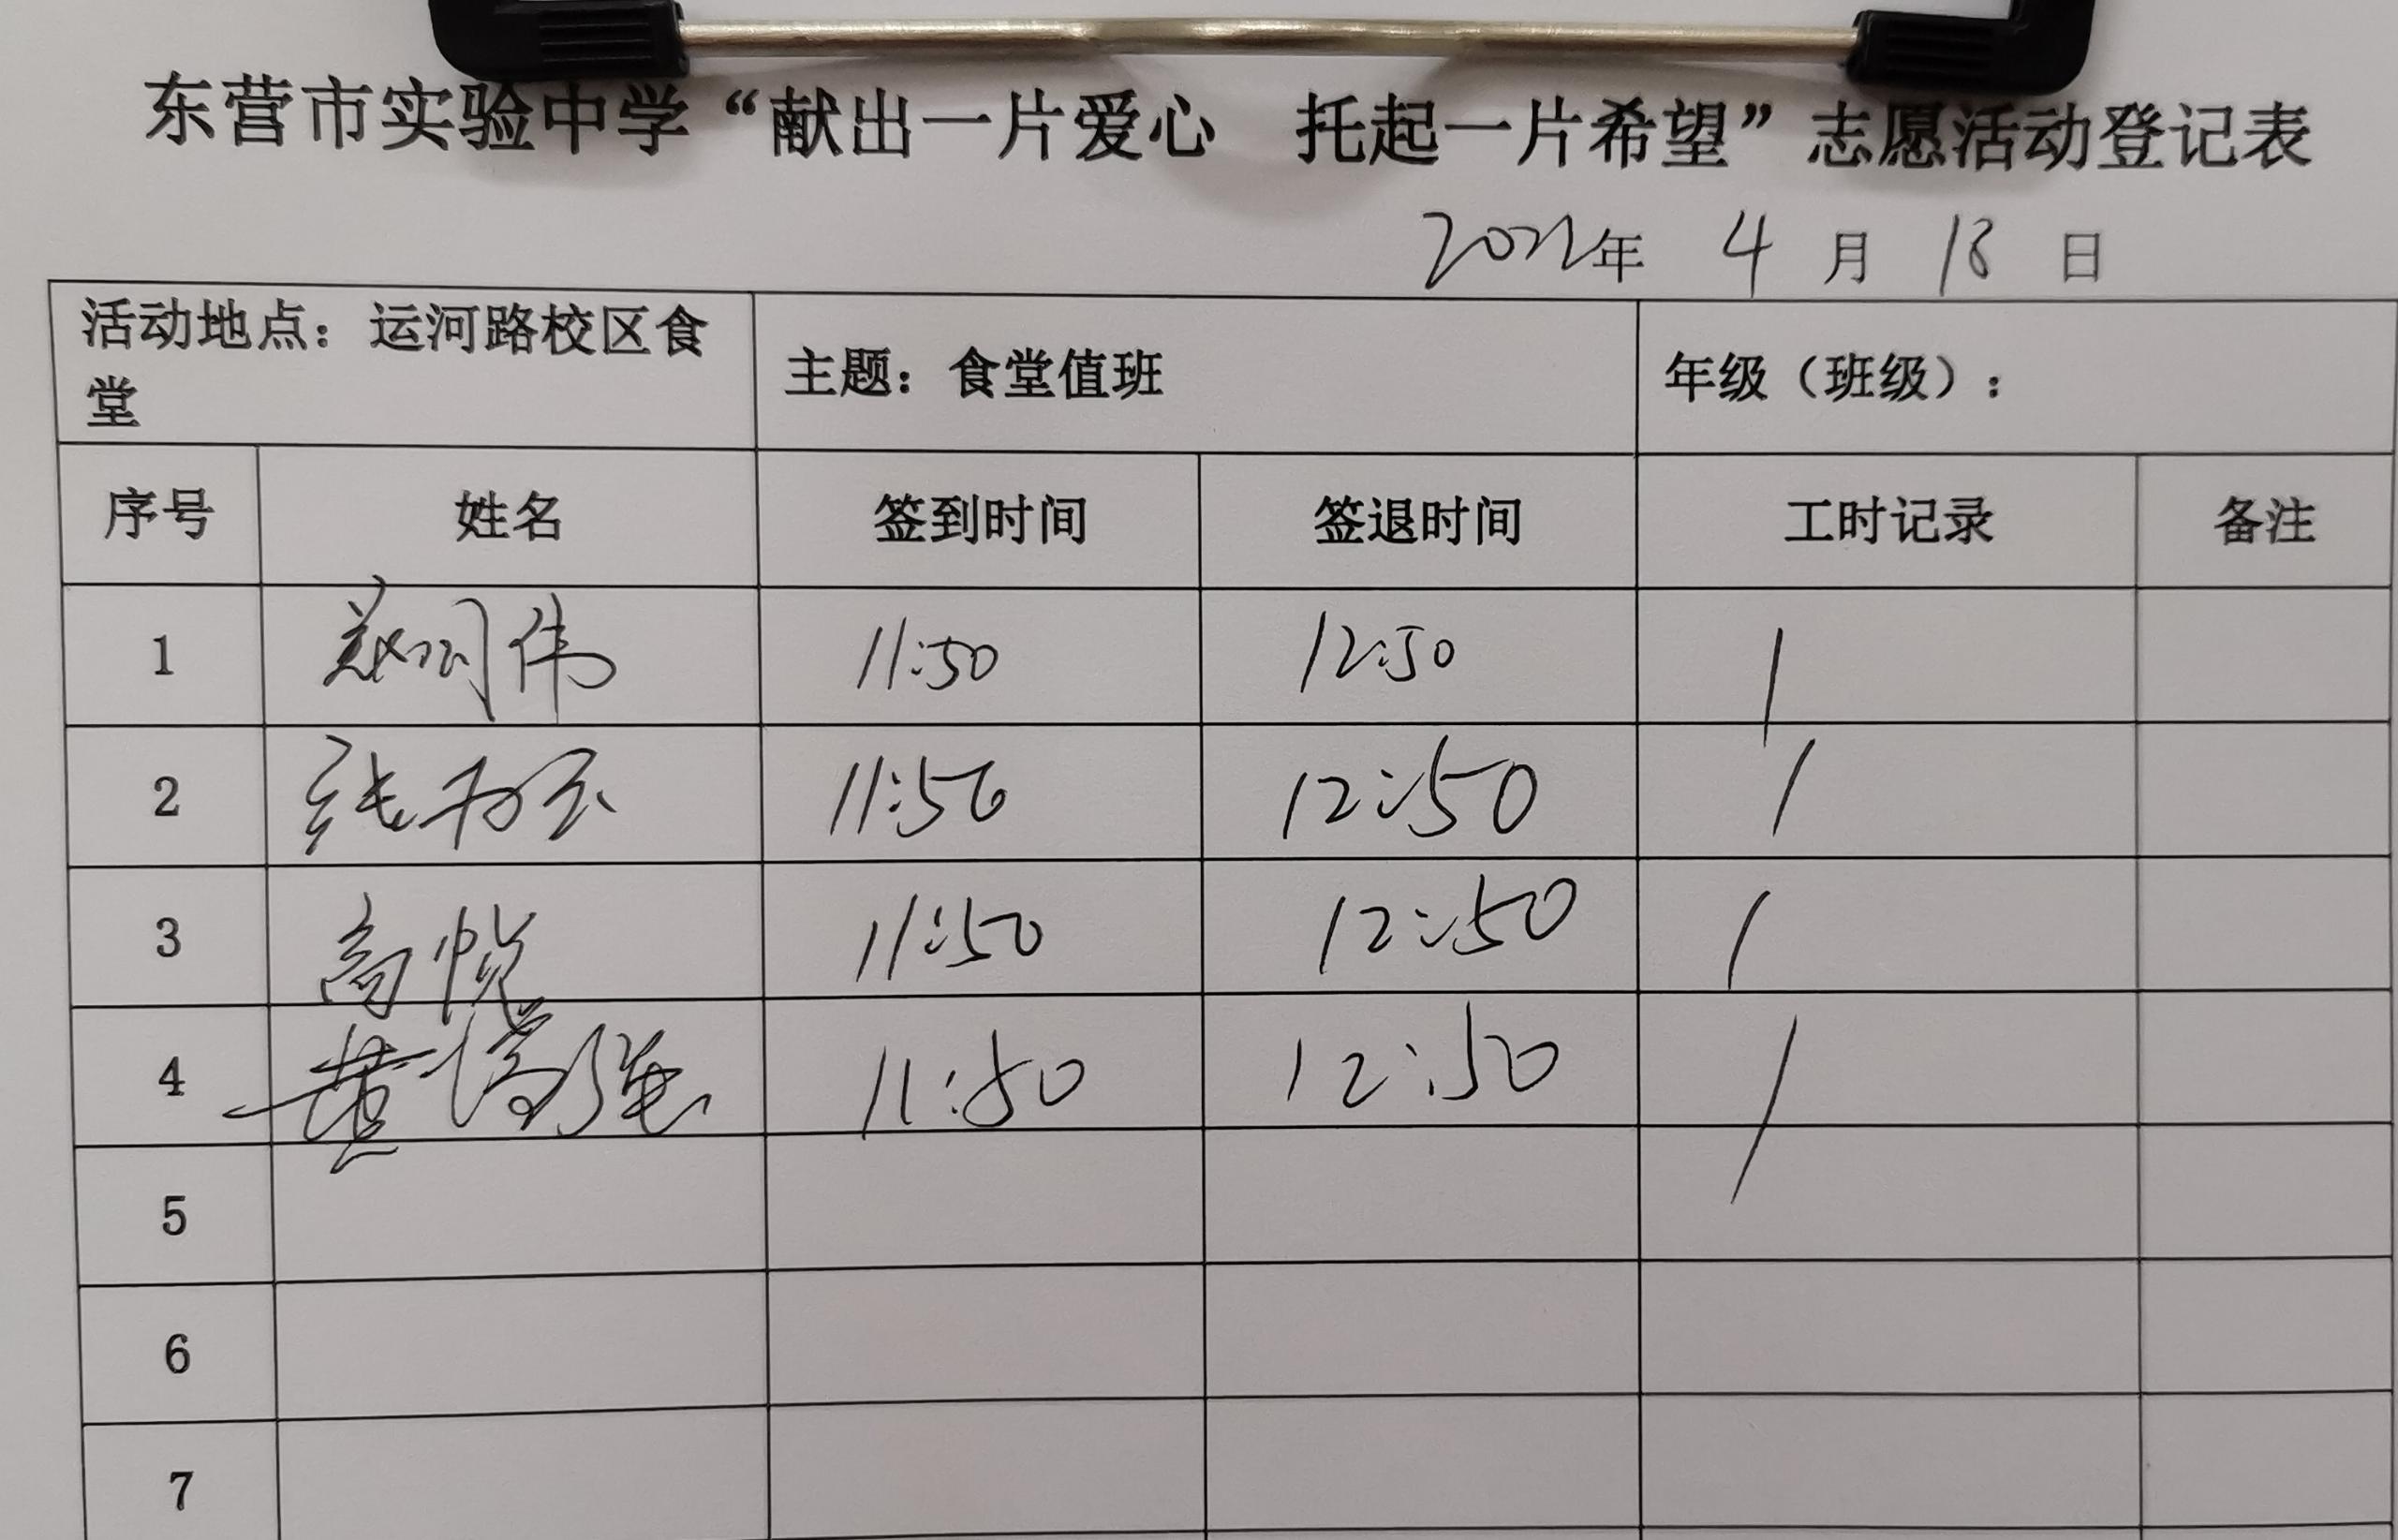 东营市实验中学“献出一片爱心 托起一片希望”志愿活动登记表
2022年 4月 18日
活动地点：运河路校区食堂 主题：食堂值班 年级（班级）：
序号 姓名 签到时间 签退时间 工时记录 备注
1 伟 11:50 12:50 1
2 张 11:50 12:50 1
3 高悦 11:50 12:50 1
4 黄 强 11:50 12:50 1
5
6
7